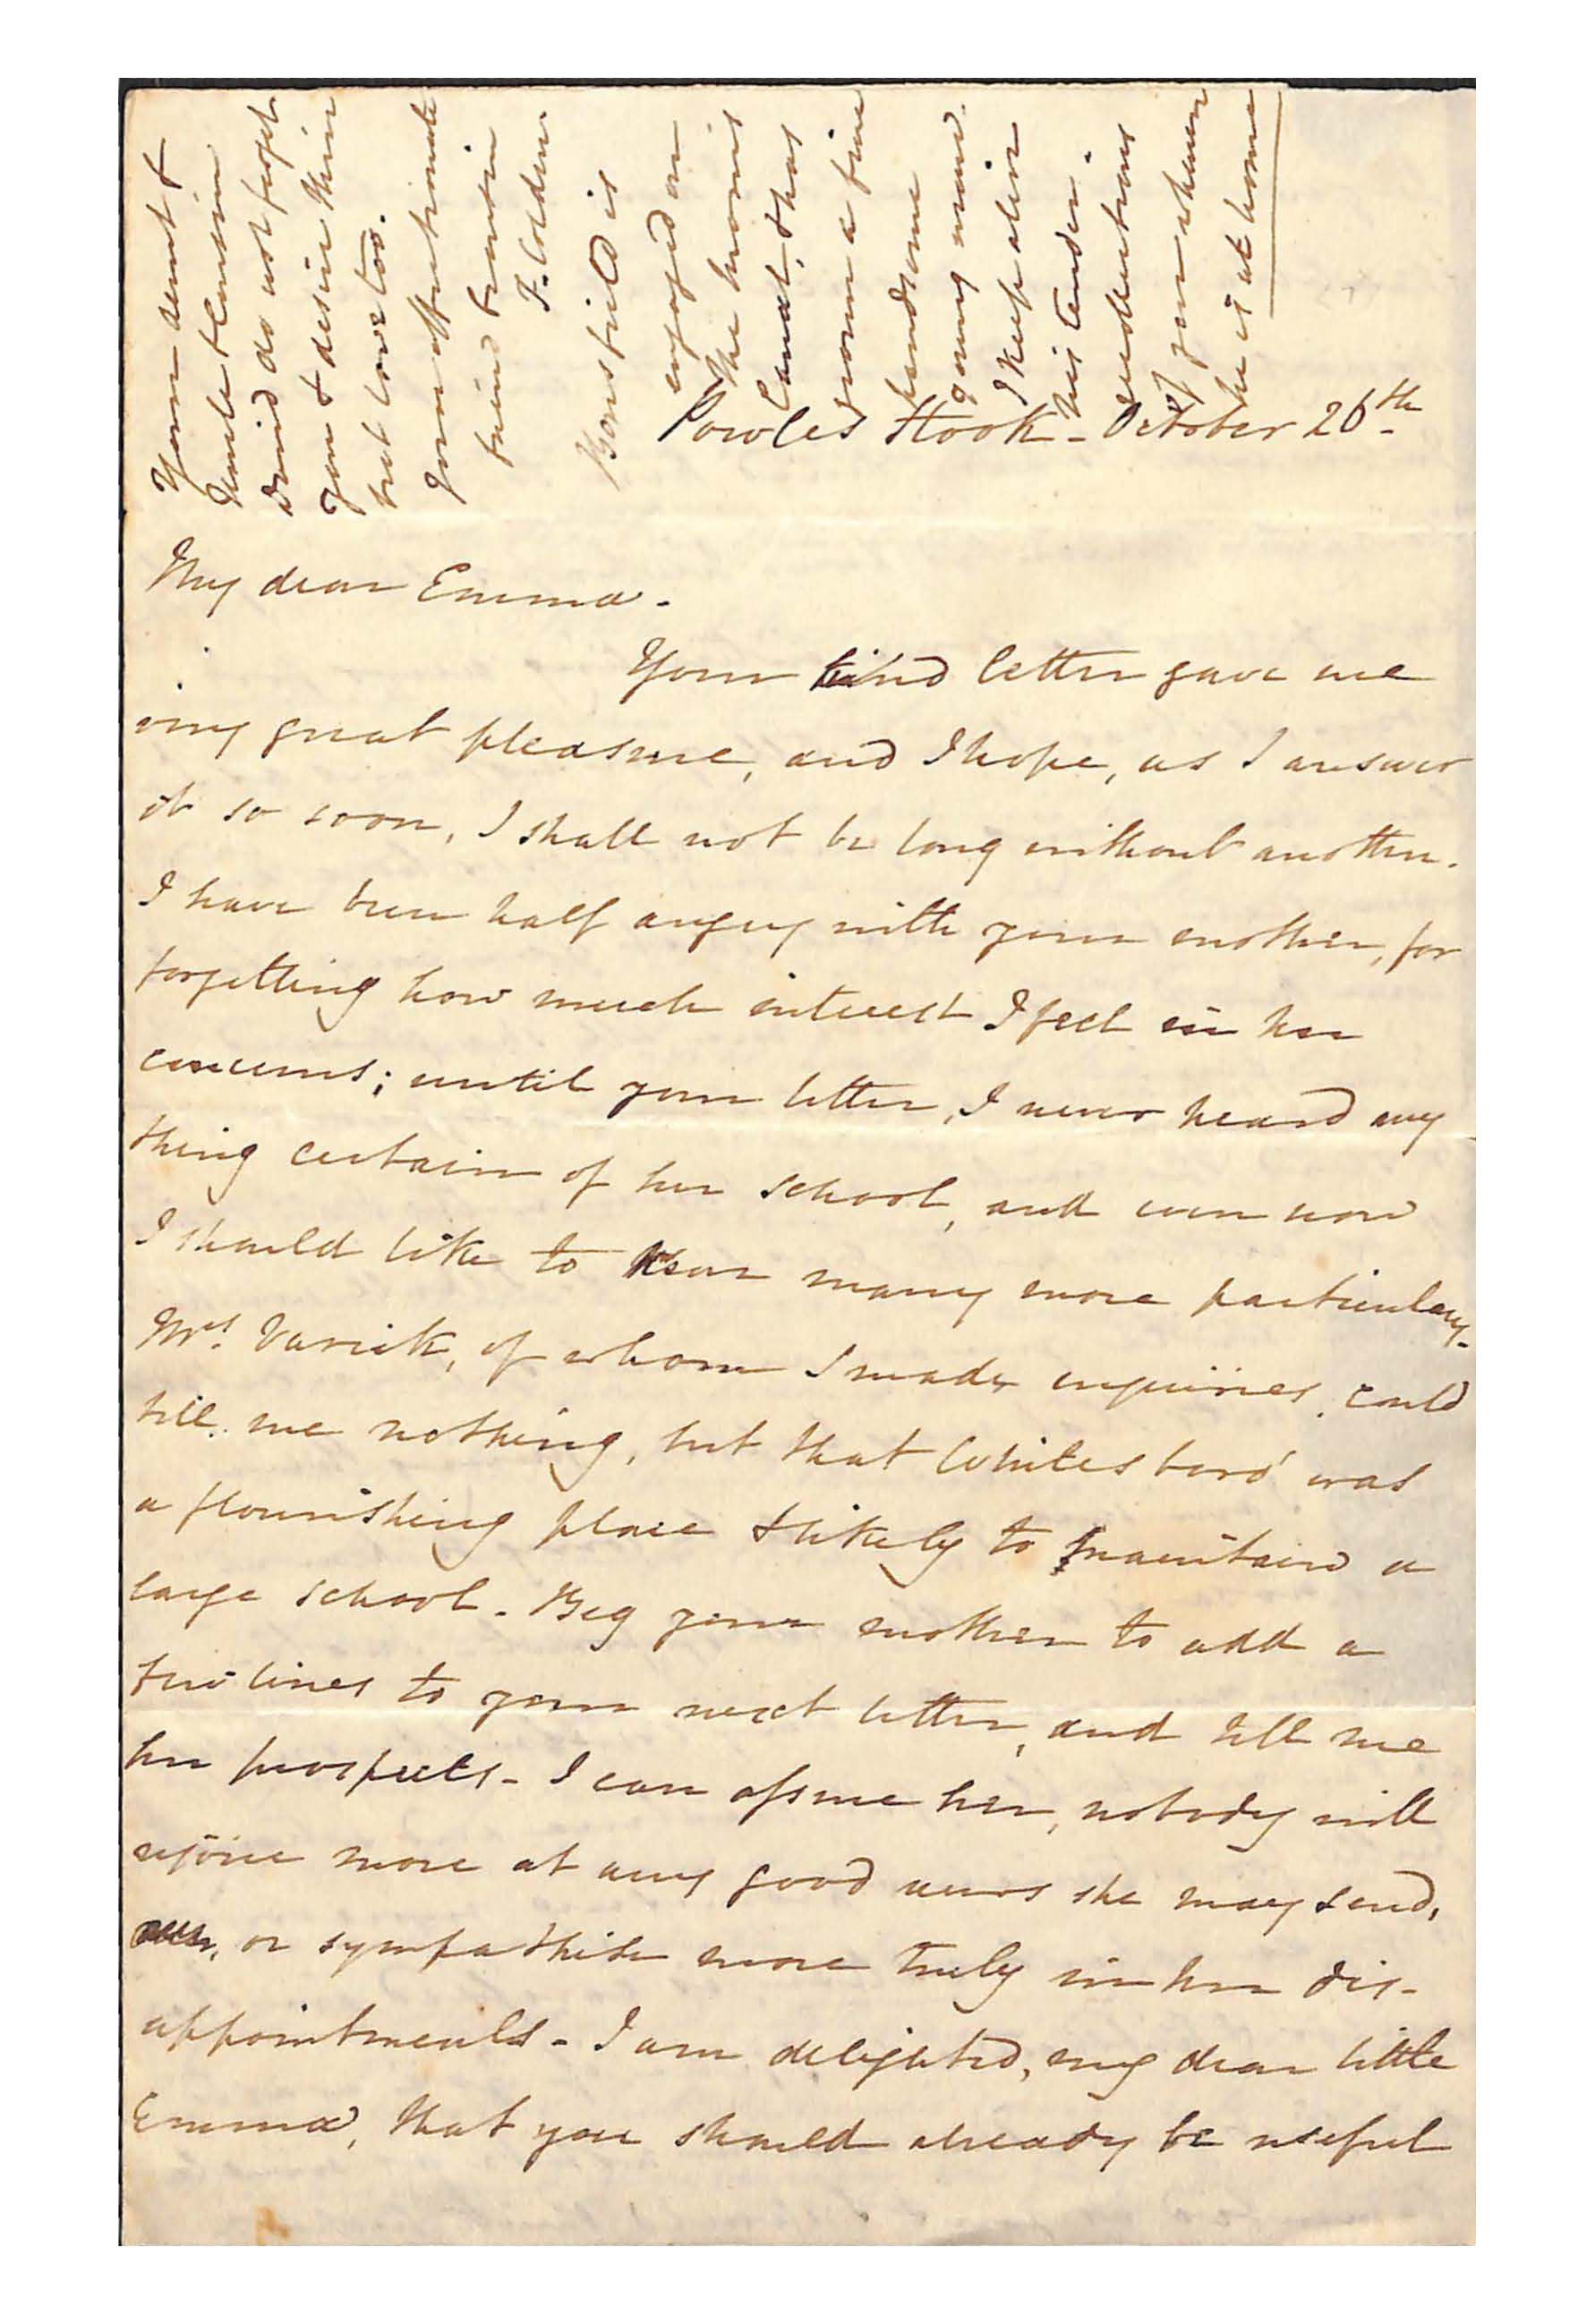 Powles Hook - October 26th
My dear Emma -
Your kind letter gave me
very great pleasure, and I hope, as I answer
it so soon, I shall not be long without another.
I have been half angry with your mother, for
forgetting how much interest I feel in her
concerns; until your letter, I never heard any
thing certain of her school, and even now
I should like to hear many more particulars.
Mrs. Varick, of whom I made enquiries, could
tell me nothing, but that Whitesboro' was
a flourishing place & likely to maintain a
large school - Beg your mother to add a
few lines to your next letter, and tell me
her prospects - I can assure her, nobody will
rejoice more at any good news she may send,
or sympathise more truly in her dis-
appointments - I am delighted, my dear little
Emma, that you should already be useful
Your Aunt &
Uncle
David do not forget
you & desire their
best love too.
Your affectionate
friend
F. Colden
is
engaged on
the
Canal, & has
grown a fine
handsome
young man.
I keep alive
his tender
recollections
of you when
he is at home